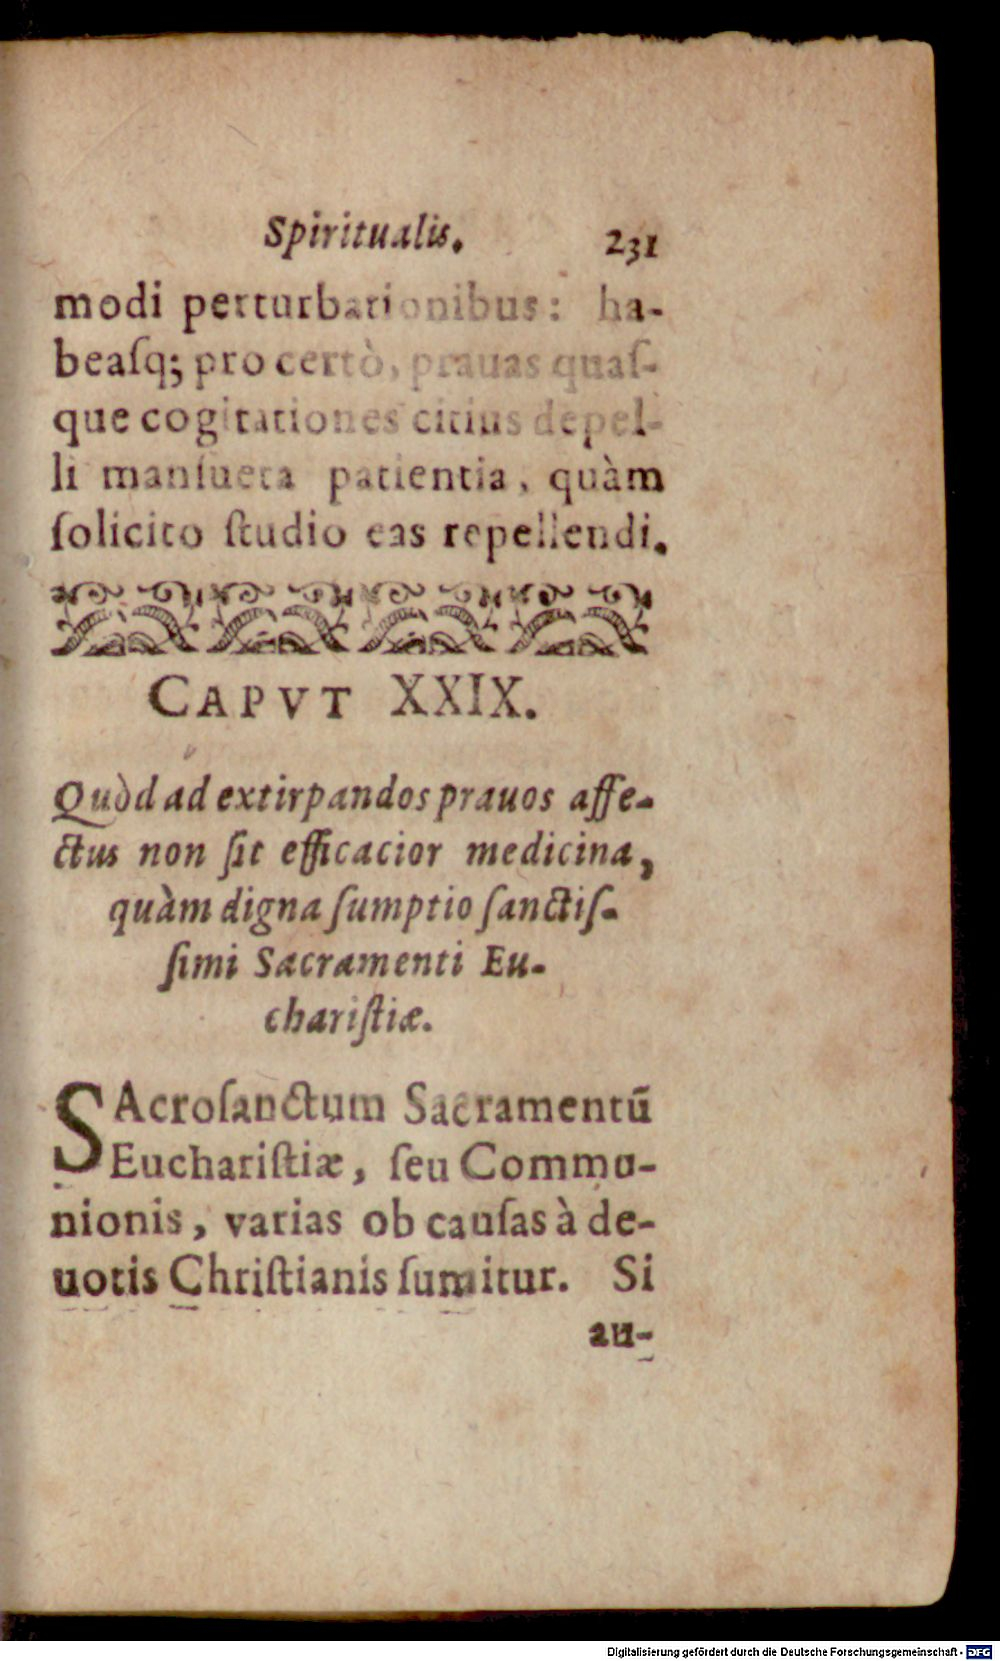 Spiritualis. 231
modi perturbationibus: ha-
beaſq; pro certò, prauas quaſ-
que cogitationes citius depel-
li manſueta patientia, quàm
ſolicito ſtudio eas repellendi.
CAPVT XXIX.
Quòd ad extirpandos prauos affe-
ctus non ſit efficacior medicina,
quàm digna ſumptio ſanctiſ-
ſimi Sacramenti Eu-
chariſtiæ.
SAcroſanctum Sacramentū
Euchariſtiæ, ſeu Commu-
nionis, varias ob cauſas à de-
uotis Chriſtianis ſumitur. Si
au-
Digitalisierung gefördert durch die Deutsche Forschungsgemeinschaft - DFG